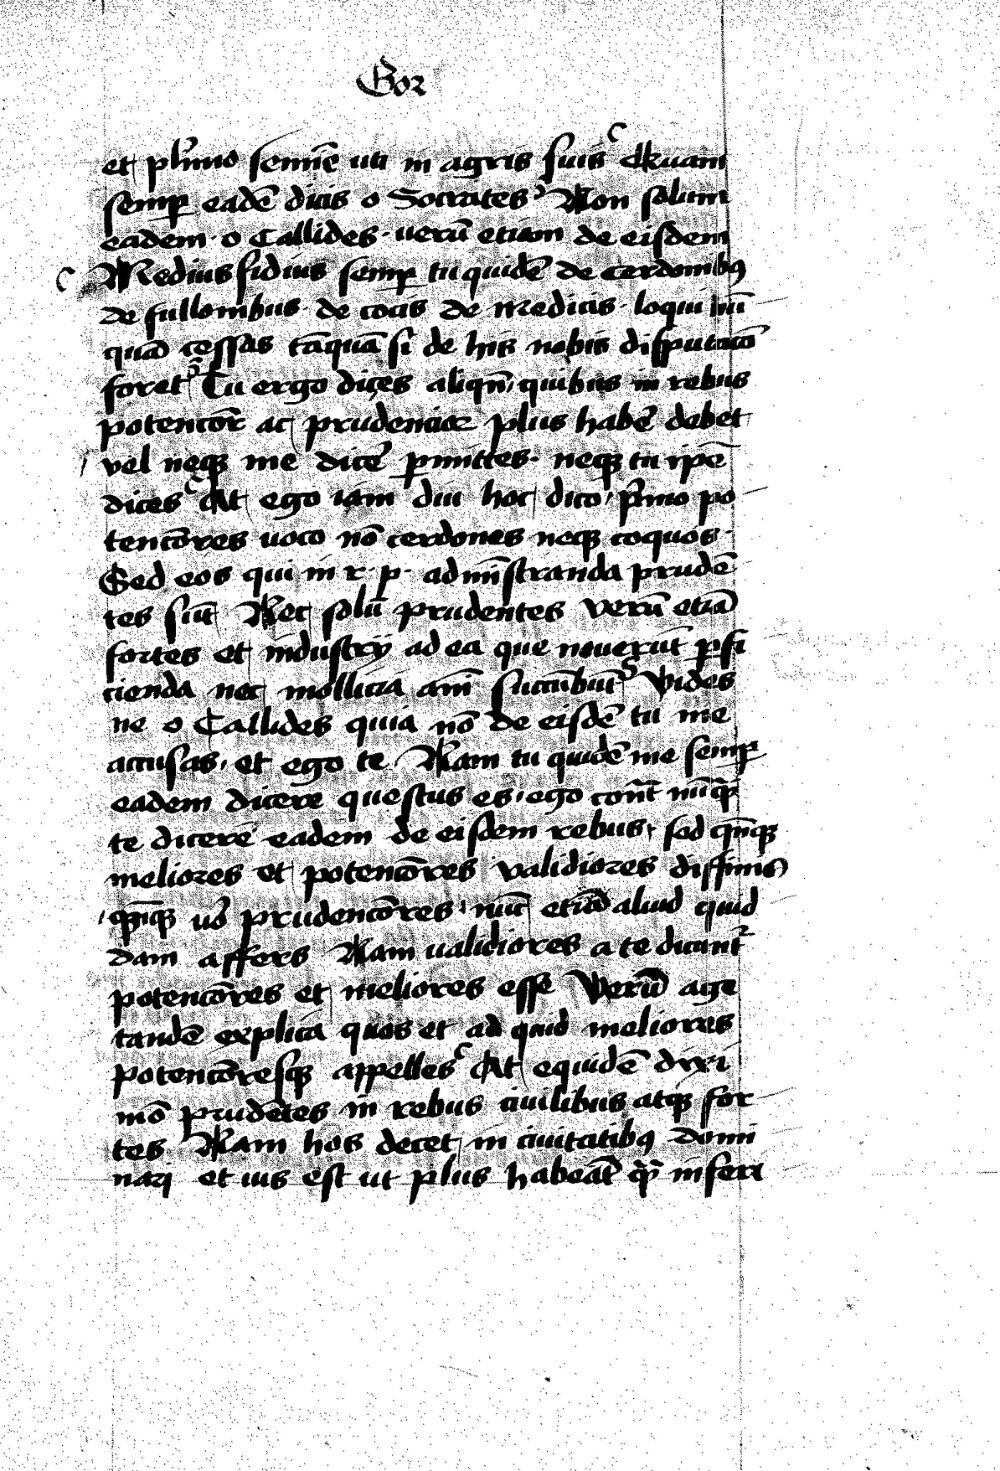 Gor
et plimo semine uti in agris suis Quam
semp eadē dicis o Socrates Non solum
eadem o Callides uerū etiam de eisdem
Mediusfidius semp tu quidē de cerdonibꝫ
de fullonibus de cocis de medicis loqui nū
quā cessas tāquā si de his nobis disputatō
foret Tu ergo dices aliqn̄ quibus in rebus
potentiōr ac prudentior plus habē debet
vel neqꝫ me dicē pmittes neqꝫ tu ipē
dices At ego iam diu hoc dico pīmo po
tentiōres uoco nō cerdones neqꝫ coquos
Sed eos qui in r p admīstranda prudē
tes sūt Nec solū prudentes verū etiā
fortes et īndustrij ad ea que nouerūt pfi
cienda nec mollicia amī succūbūt Vides
ne o Callides quia nō de eisdē tu me
accusas et ego te Nam tu quidē me semp
eadem dicere questus es ego cont̄ nūqꝫ
te dicere eadem de eisdem rebus sed qn̄qꝫ
meliores et potentiōres validiores diffinis
qn̄qꝫ uō prudentiōres nūc etiā aliud quid
dam affers Nam ualidiores a te dicunt
potentiōres et meliores esse Verū age
tandē explica quos et ad quid meliores
potentiōresqꝫ appelles At equidē dixi
mō prudētes in rebus ciuilibus atqꝫ for
tes Nam hos decet in ciuitatibꝫ domi
nari et ius est ut plus habeāt qꝫ inferi